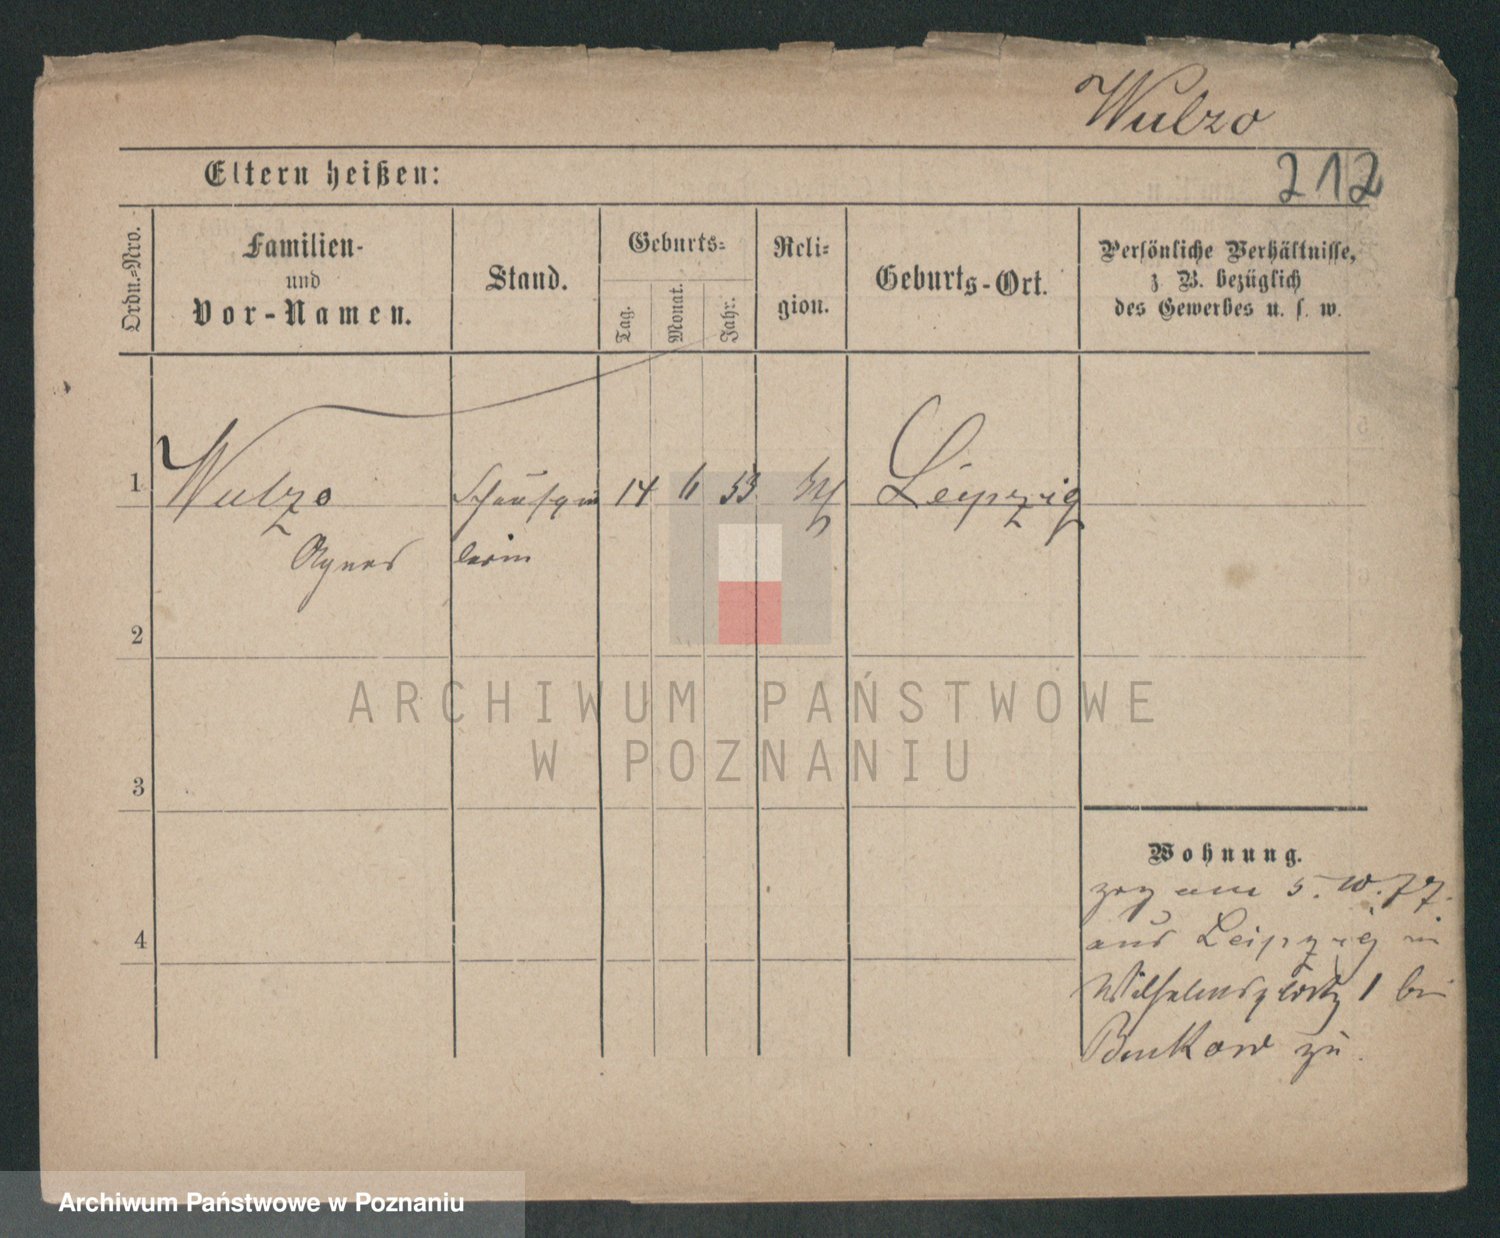 Wulzo
212
Eltern heißen:
Ordn.-Nro.
Familien-
und
Vor-Namen.
Stand.
Geburts-
Tag.
Monat.
Jahr.
Reli-
gion.
Geburts-Ort.
Persönliche Verhältnisse,
z. B. bezüglich
des Gewerbes u. s. w.
1 Wulzo Schauspie 14 6 53 Leipzig
Agnes lerin
2
3
4
Wohnung.
zog am 5. 10. 77.
aus Leipzig in
Wilhelmsplatz 1 bei
zu.
ARCHIWUM PAŃSTWOWE
W POZNANIU
Archiwum Państwowe w Poznaniu